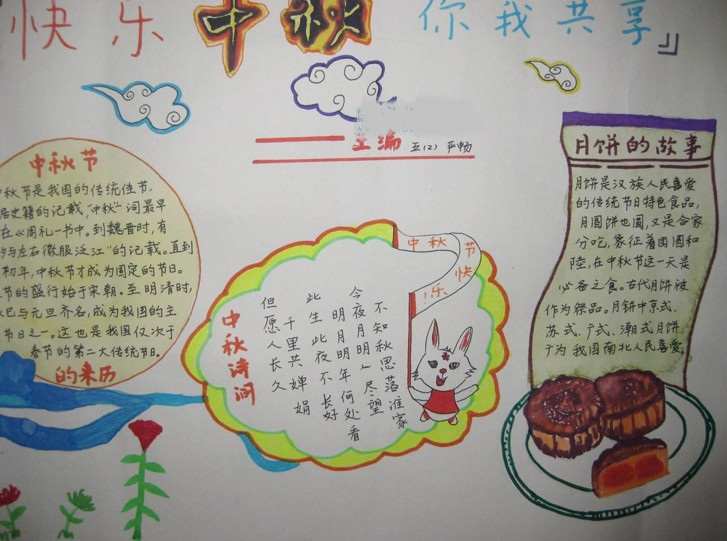 快乐中秋 你我共享』
主编 五(2) 严畅
中秋节
秋节是我国的传统佳节。
史籍的记载,"中秋"一词最早
在《周礼》一书中。到魏晋时,有
与左右微服泛江"的记载。直到
初年,中秋节才成为固定的节日。
节的盛行始于宋朝,至明清时,
已与元旦齐名,成为我国的主
节日之一。这也是我国仅次于
春节的第二大传统节日。
的来历
中秋节
快乐
中秋诗词
今夜月明人尽望
不知秋思落谁家
此生此夜不长好
明月明年何处看
但愿人长久
千里共婵娟
月饼的故事
月饼是汉族人民喜爱
的传统节日特色食品,
月圆饼也圆,又是合家
分吃,象征着团圆和
睦,在中秋节这一天是
必备之食。古代月饼被
作为祭品。月饼中京式、
苏式、广式、潮式月饼,
广为我国南北人民喜爱。